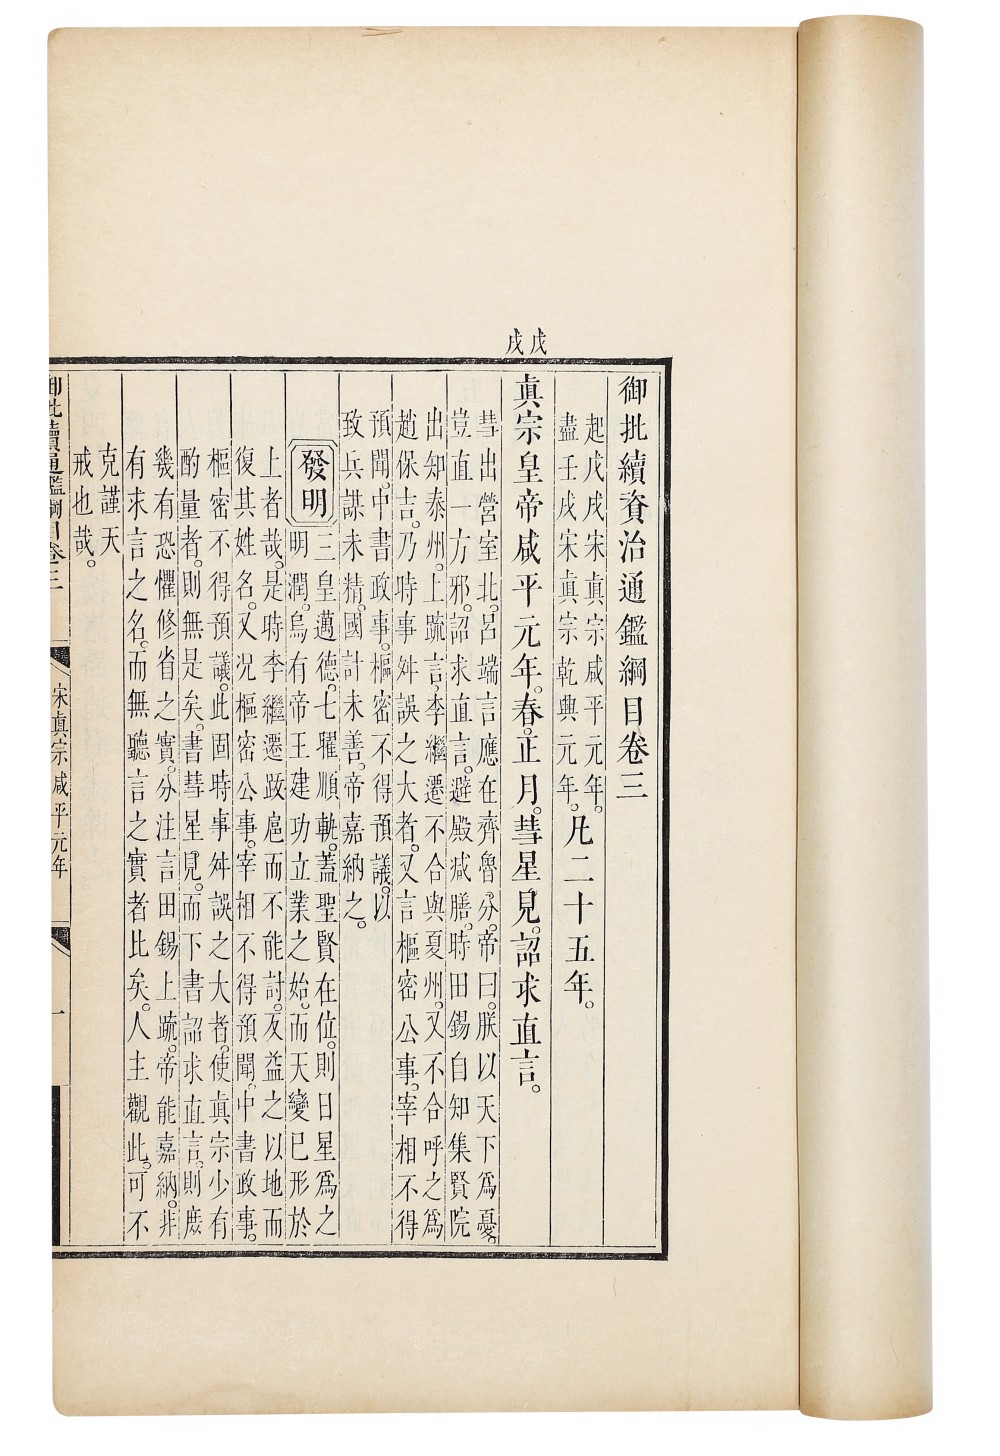 戊戌
御批續資治通鑑綱目卷三
起戊戌宋眞宗咸平元年。
盡壬戌宋眞宗乾興元年。凡二十五年。
眞宗皇帝咸平元年。春。正月。彗星見。詔求直言。
彗出營室北。呂端言應在齊魯分。帝曰。朕以天下爲憂。
豈直一方邪。詔求直言。避殿減膳。時田錫自知集賢院
出知泰州。上疏言。李繼遷不合與夏州。又不合呼之爲
趙保吉。乃時事舛誤之大者。又言樞密公事。宰相不得
預聞。中書政事。樞密不得預議。以
致兵謀未精。國計未善。帝嘉納之。
發明
三皇邁德。七曜順軌。蓋聖賢在位。則日星爲之
明潤。烏有帝王建功立業之始。而天變已形於
上者哉。是時李繼遷跋扈而不能討。反益之以地而
復其姓名。又况樞密公事。宰相不得預聞。中書政事。
樞密不得預議。此固時事舛誤之大者。使眞宗少有
酌量者。則無是矣。書彗星見。而下書詔求直言。則庶
幾有恐懼修省之實。分注言田錫上疏。帝能嘉納。非
有求言之名。而無聽言之實者比矣。人主觀此。可不
克謹天
戒也哉。
御批續通鑑綱目卷三
宋眞宗咸平元年
一